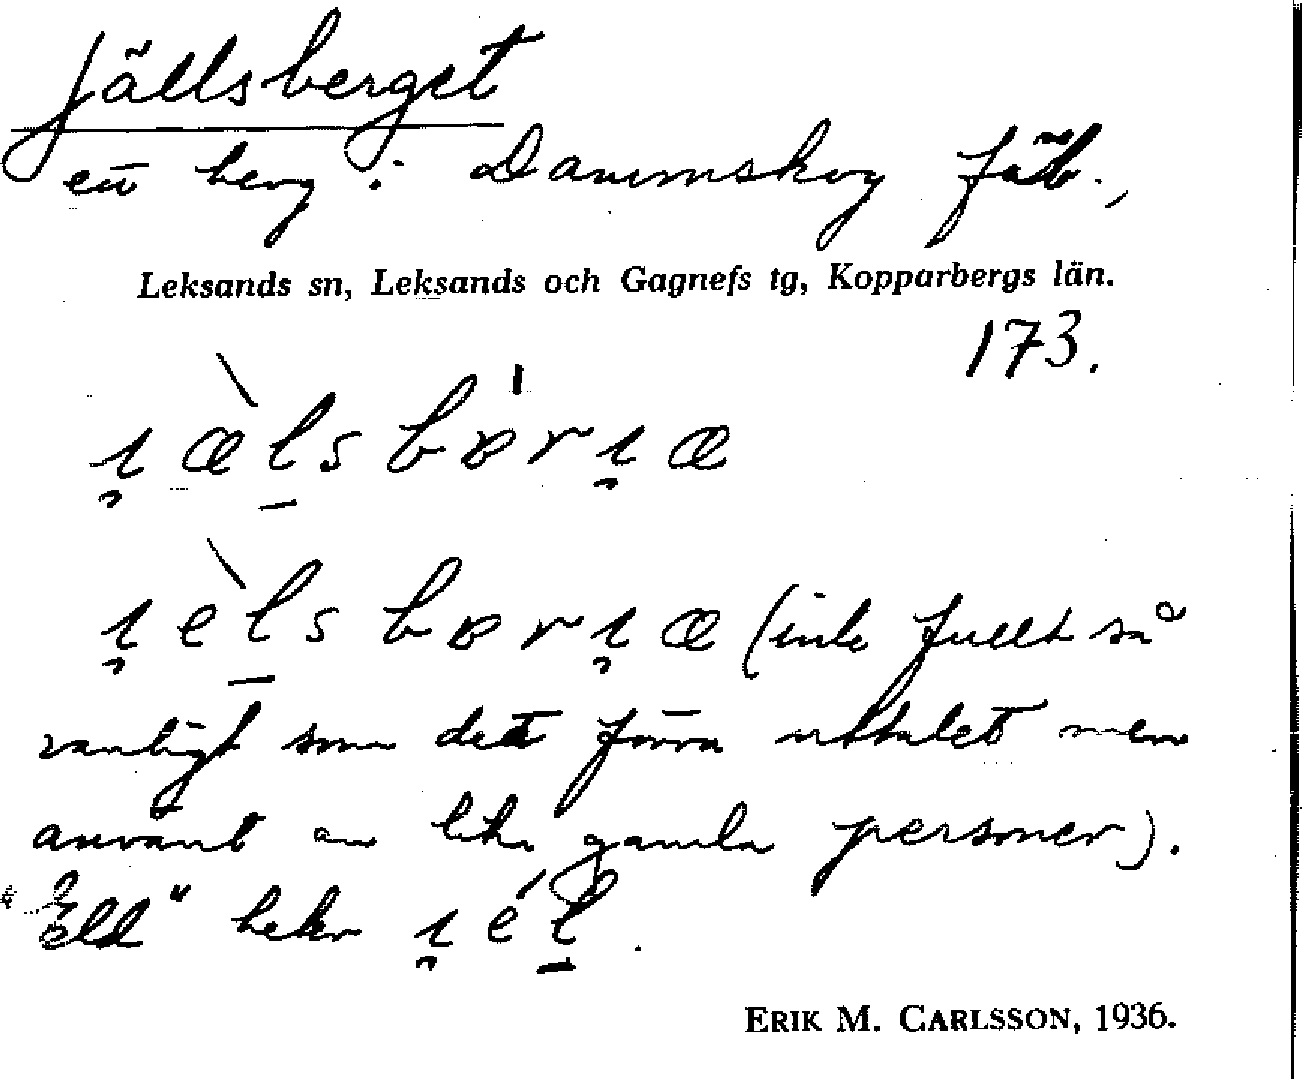 Jällsberget
ett berg i Dammskog fäb.,
Leksands sn, Leksands och Gagnefs tg, Kopparbergs län.
173.
ı̯æ̀l̠sbɵ́rı̯æ
ı̯èl̠sbɵrı̯æ (inte fullt så
vanligt som det förra uttalet men
använt av lika gamla personer).
"Eld" heter ı̯él̠.
ERIK M. CARLSSON, 1936.